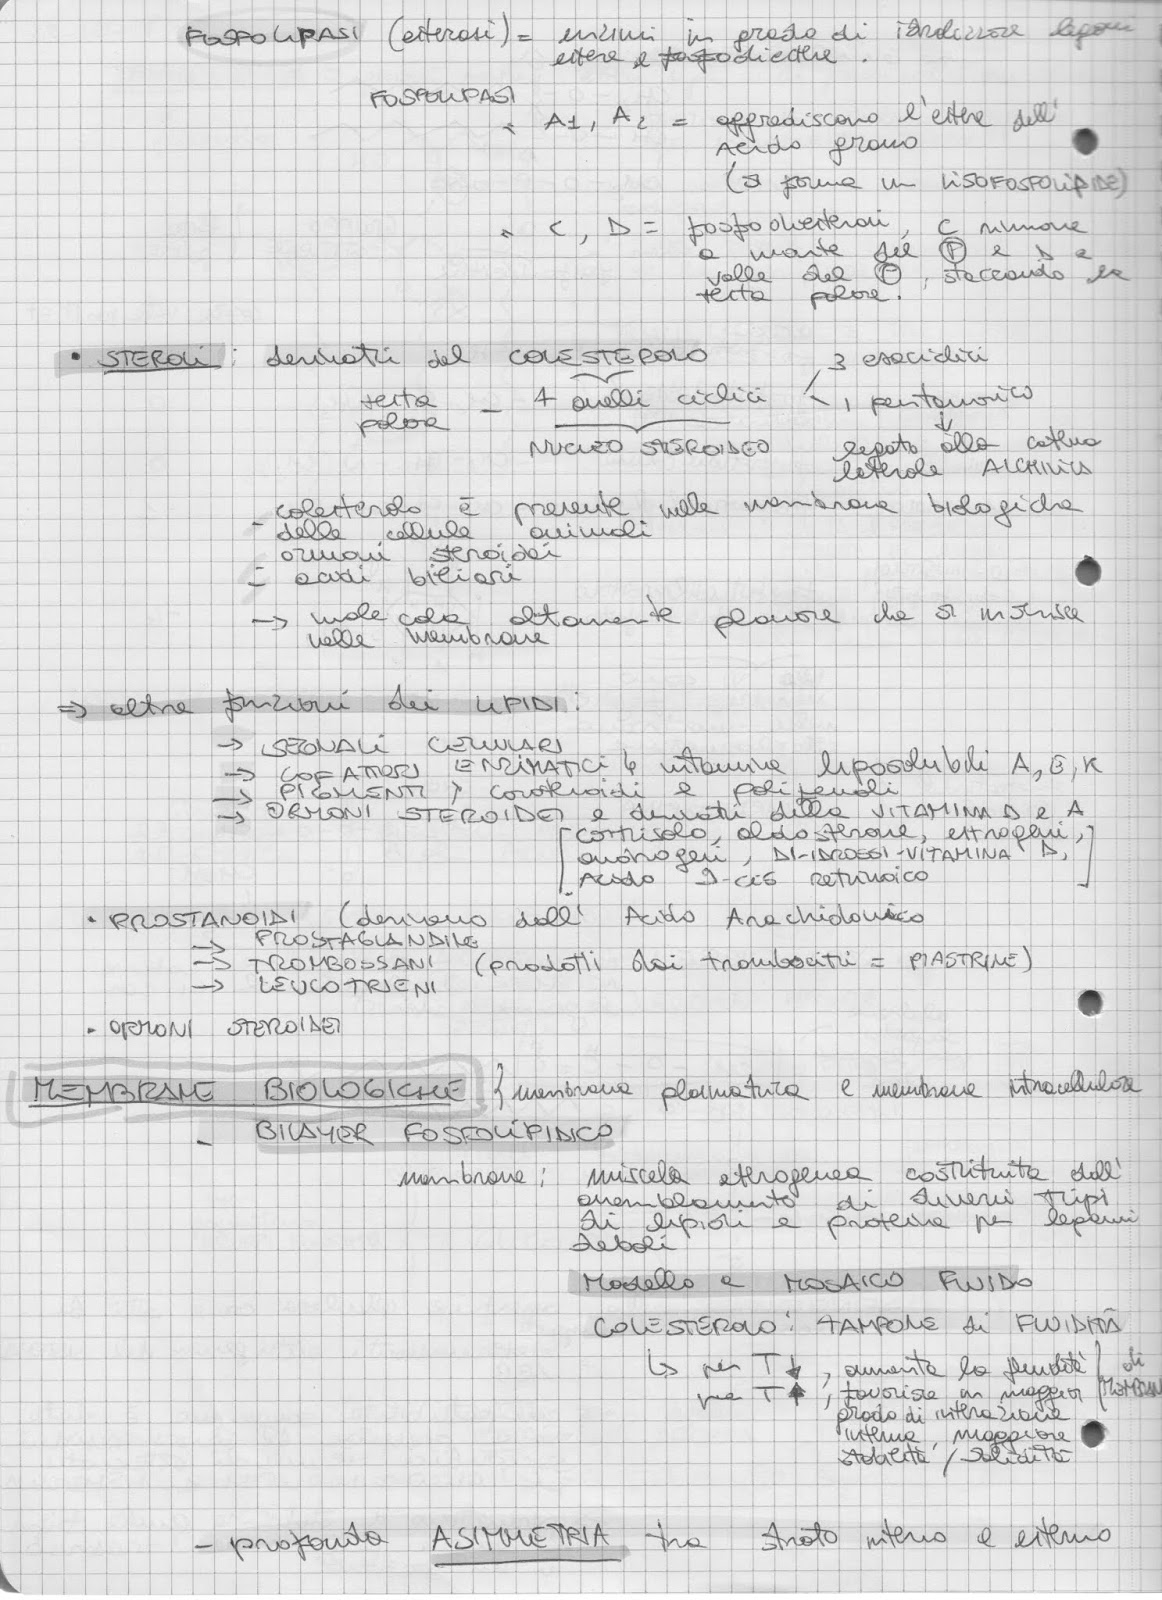 FOSFOLIPASI (esterasi) = enzimi in grado di idrolizzare legami
estere e fosfodiestere.
FOSFOLIPASI
• A1, A2 = aggrediscono l'estere dell'
Acido grasso
(si forma un LISOFOSFOLIPIDE)
• C, D = fosfodiesterasi, C rimuove
a monte del Ⓟ e D a
valle del Ⓟ, staccando la
testa polare.
• STEROLI: derivati del COLESTEROLO
3 esaciclici
testa polare - 4 anelli ciclici
1 pentanonico
NUCLEO STEROIDEO
legato alla catena
laterale ALCHILICA
- colesterolo è presente nelle membrane biologiche
delle cellule animali
- ormoni steroidei
- acidi biliari
-> molecola altamente planare che si inserisce
nelle membrane
=> altre funzioni dei LIPIDI:
-> SEGNALI CELLULARI
-> COFATTORI ENZIMATICI vitamine liposolubili A, E, K
-> PIGMENTI carotenoidi e polifenoli
-> ORMONI STEROIDEI e derivati della VITAMINA D e A
[cortisolo, aldosterone, estrogeni,
androgeni, DI-IDROSSI-VITAMINA D,
Acido 9-cis retinoico]
• PROSTANOIDI (derivano dall' Acido Arachidonico
-> PROSTAGLANDINE
-> TROMBOSSANI (prodotti dai trombociti = PIASTRINE)
-> LEUCOTRIENI
• ORMONI STEROIDEI
MEMBRANE BIOLOGICHE } membrana plasmatica e membrane intracellulare
- BILAYER FOSFOLIPIDICO
membrane: miscela eterogenea costituita dall'
assemblamento di diversi tipi
di lipidi e proteine per legami
deboli
Modello a MOSAICO FLUIDO
COLESTEROLO: TAMPONE di FLUIDITÀ
↳ per T ↓, aumenta la fluidità } di
per T ↑, favorisce un maggior } MEMBRANA
grado di interazione
interna, maggiore
stabilità / solidità
- profonda ASIMMETRIA tra strato interno e esterno